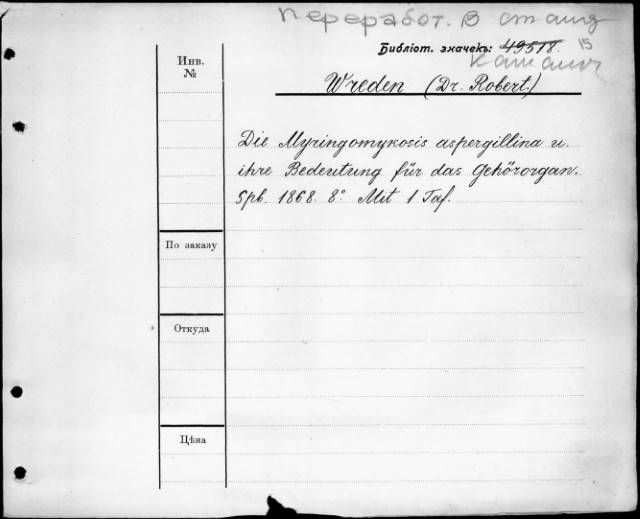 переработ. в станд
Библіот. значекъ: 49518. 15
Инв.
№
Wreden (Dr. Robert.)
Die Myringomykosis aspergillina u.
ihre Bedeutung für das Gehörorgan.
Spb. 1868. 8° Mit 1 Taf.
По заказу
Откуда
Цѣна